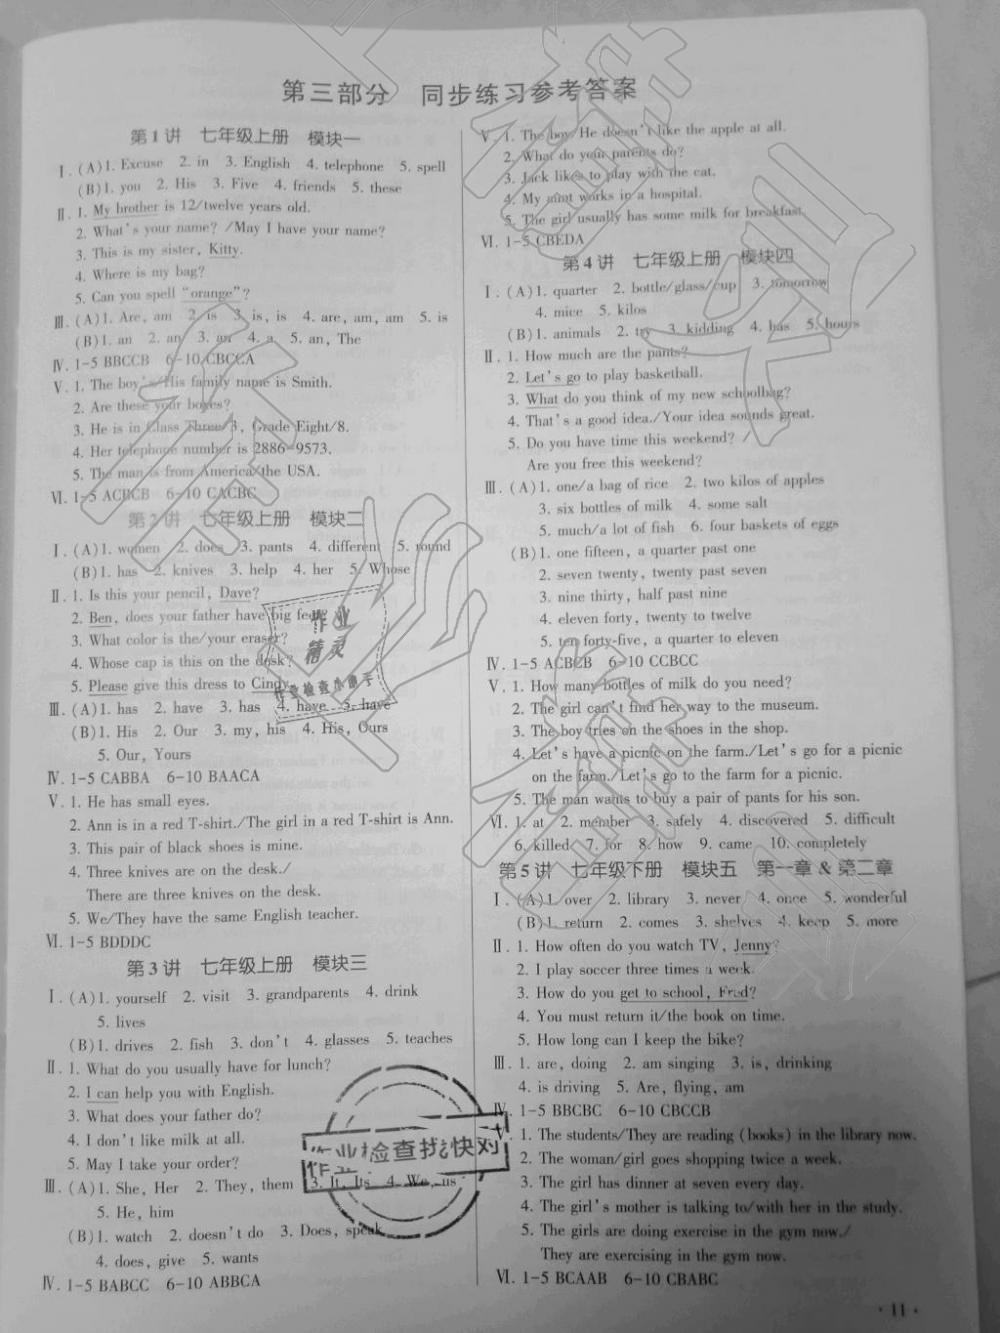 第三部分 同步练习参考答案
第1讲 七年级上册 模块一
Ⅰ. (A)1. Excuse 2. in 3. English 4. telephone 5. spell
(B)1. you 2. His 3. Five 4. friends 5. these
Ⅱ. 1. My brother is 12/twelve years old.
2. What's your name? /May I have your name?
3. This is my sister, Kitty.
4. Where is my bag?
5. Can you spell "orange"?
Ⅲ. (A)1. Are, am 2. is 3. is, is 4. are, am, am 5. is
(B)1. an 2. an 3. an 4. a 5. an, The
Ⅳ. 1-5 BBCCB 6-10 CBCCA
Ⅴ. 1. The boy's/His family name is Smith.
2. Are these your boxes?
3. He is in Class Three/3, Grade Eight/8.
4. Her telephone number is 2886-9573.
5. The man is from America/the USA.
Ⅵ. 1-5 ACBCB 6-10 CACBC
第2讲 七年级上册 模块二
Ⅰ. (A)1. women 2. does 3. pants 4. different 5. round
(B)1. has 2. knives 3. help 4. her 5. Whose
Ⅱ. 1. Is this your pencil, Dave?
2. Ben, does your father have big feet?
3. What color is the/your eraser?
4. Whose cap is this on the desk?
5. Please give this dress to Cindy.
Ⅲ. (A)1. has 2. have 3. has 4. have 5. have
(B)1. His 2. Our 3. my, his 4. His, Ours
5. Our, Yours
Ⅳ. 1-5 CABBA 6-10 BAACA
Ⅴ. 1. He has small eyes.
2. Ann is in a red T-shirt./The girl in a red T-shirt is Ann.
3. This pair of black shoes is mine.
4. Three knives are on the desk./
There are three knives on the desk.
5. We/They have the same English teacher.
Ⅵ. 1-5 BDDDC
第3讲 七年级上册 模块三
Ⅰ. (A)1. yourself 2. visit 3. grandparents 4. drink
5. lives
(B)1. drives 2. fish 3. don't 4. glasses 5. teaches
Ⅱ. 1. What do you usually have for lunch?
2. I can help you with English.
3. What does your father do?
4. I don't like milk at all.
5. May I take your order?
Ⅲ. (A)1. She, Her 2. They, them 3. It, Its 4. We, us
5. He, him
(B)1. watch 2. doesn't do 3. Does, speak
4. does, give 5. wants
Ⅳ. 1-5 BABCC 6-10 ABBCA
Ⅴ. 1. The boy/He doesn't like the apple at all.
2. What do your parents do?
3. Jack likes to play with the cat.
4. My aunt works in a hospital.
5. The girl usually has some milk for breakfast.
Ⅵ. 1-5 CBEDA
第4讲 七年级上册 模块四
Ⅰ. (A)1. quarter 2. bottle/glass/cup 3. tomorrow
4. mice 5. kilos
(B)1. animals 2. try 3. kidding 4. has 5. hours
Ⅱ. 1. How much are the pants?
2. Let's go to play basketball.
3. What do you think of my new schoolbag?
4. That's a good idea./Your idea sounds great.
5. Do you have time this weekend? /
Are you free this weekend?
Ⅲ. (A)1. one/a bag of rice 2. two kilos of apples
3. six bottles of milk 4. some salt
5. much/a lot of fish 6. four baskets of eggs
(B)1. one fifteen, a quarter past one
2. seven twenty, twenty past seven
3. nine thirty, half past nine
4. eleven forty, twenty to twelve
5. ten forty-five, a quarter to eleven
Ⅳ. 1-5 ACBCB 6-10 CCBCC
Ⅴ. 1. How many bottles of milk do you need?
2. The girl can't find her way to the museum.
3. The boy tries on the shoes in the shop.
4. Let's have a picnic on the farm./Let's go for a picnic
on the farm./Let's go to the farm for a picnic.
5. The man wants to buy a pair of pants for his son.
Ⅵ. 1. at 2. member 3. safely 4. discovered 5. difficult
6. killed 7. for 8. how 9. came 10. completely
第5讲 七年级下册 模块五 第一章 & 第二章
Ⅰ. (A)1. over 2. library 3. never 4. once 5. wonderful
(B)1. return 2. comes 3. shelves 4. keep 5. more
Ⅱ. 1. How often do you watch TV, Jenny?
2. I play soccer three times a week.
3. How do you get to school, Fred?
4. You must return it/the book on time.
5. How long can I keep the bike?
Ⅲ. 1. are, doing 2. am singing 3. is, drinking
4. is driving 5. Are, flying, am
Ⅳ. 1-5 BBCBC 6-10 CBCCB
Ⅴ. 1. The students/They are reading (books) in the library now.
2. The woman/girl goes shopping twice a week.
3. The girl has dinner at seven every day.
4. The girl's mother is talking to/with her in the study.
5. The girls are doing exercise in the gym now./
They are exercising in the gym now.
Ⅵ. 1-5 BCAAB 6-10 CBABC
· 11 ·
作业
精灵